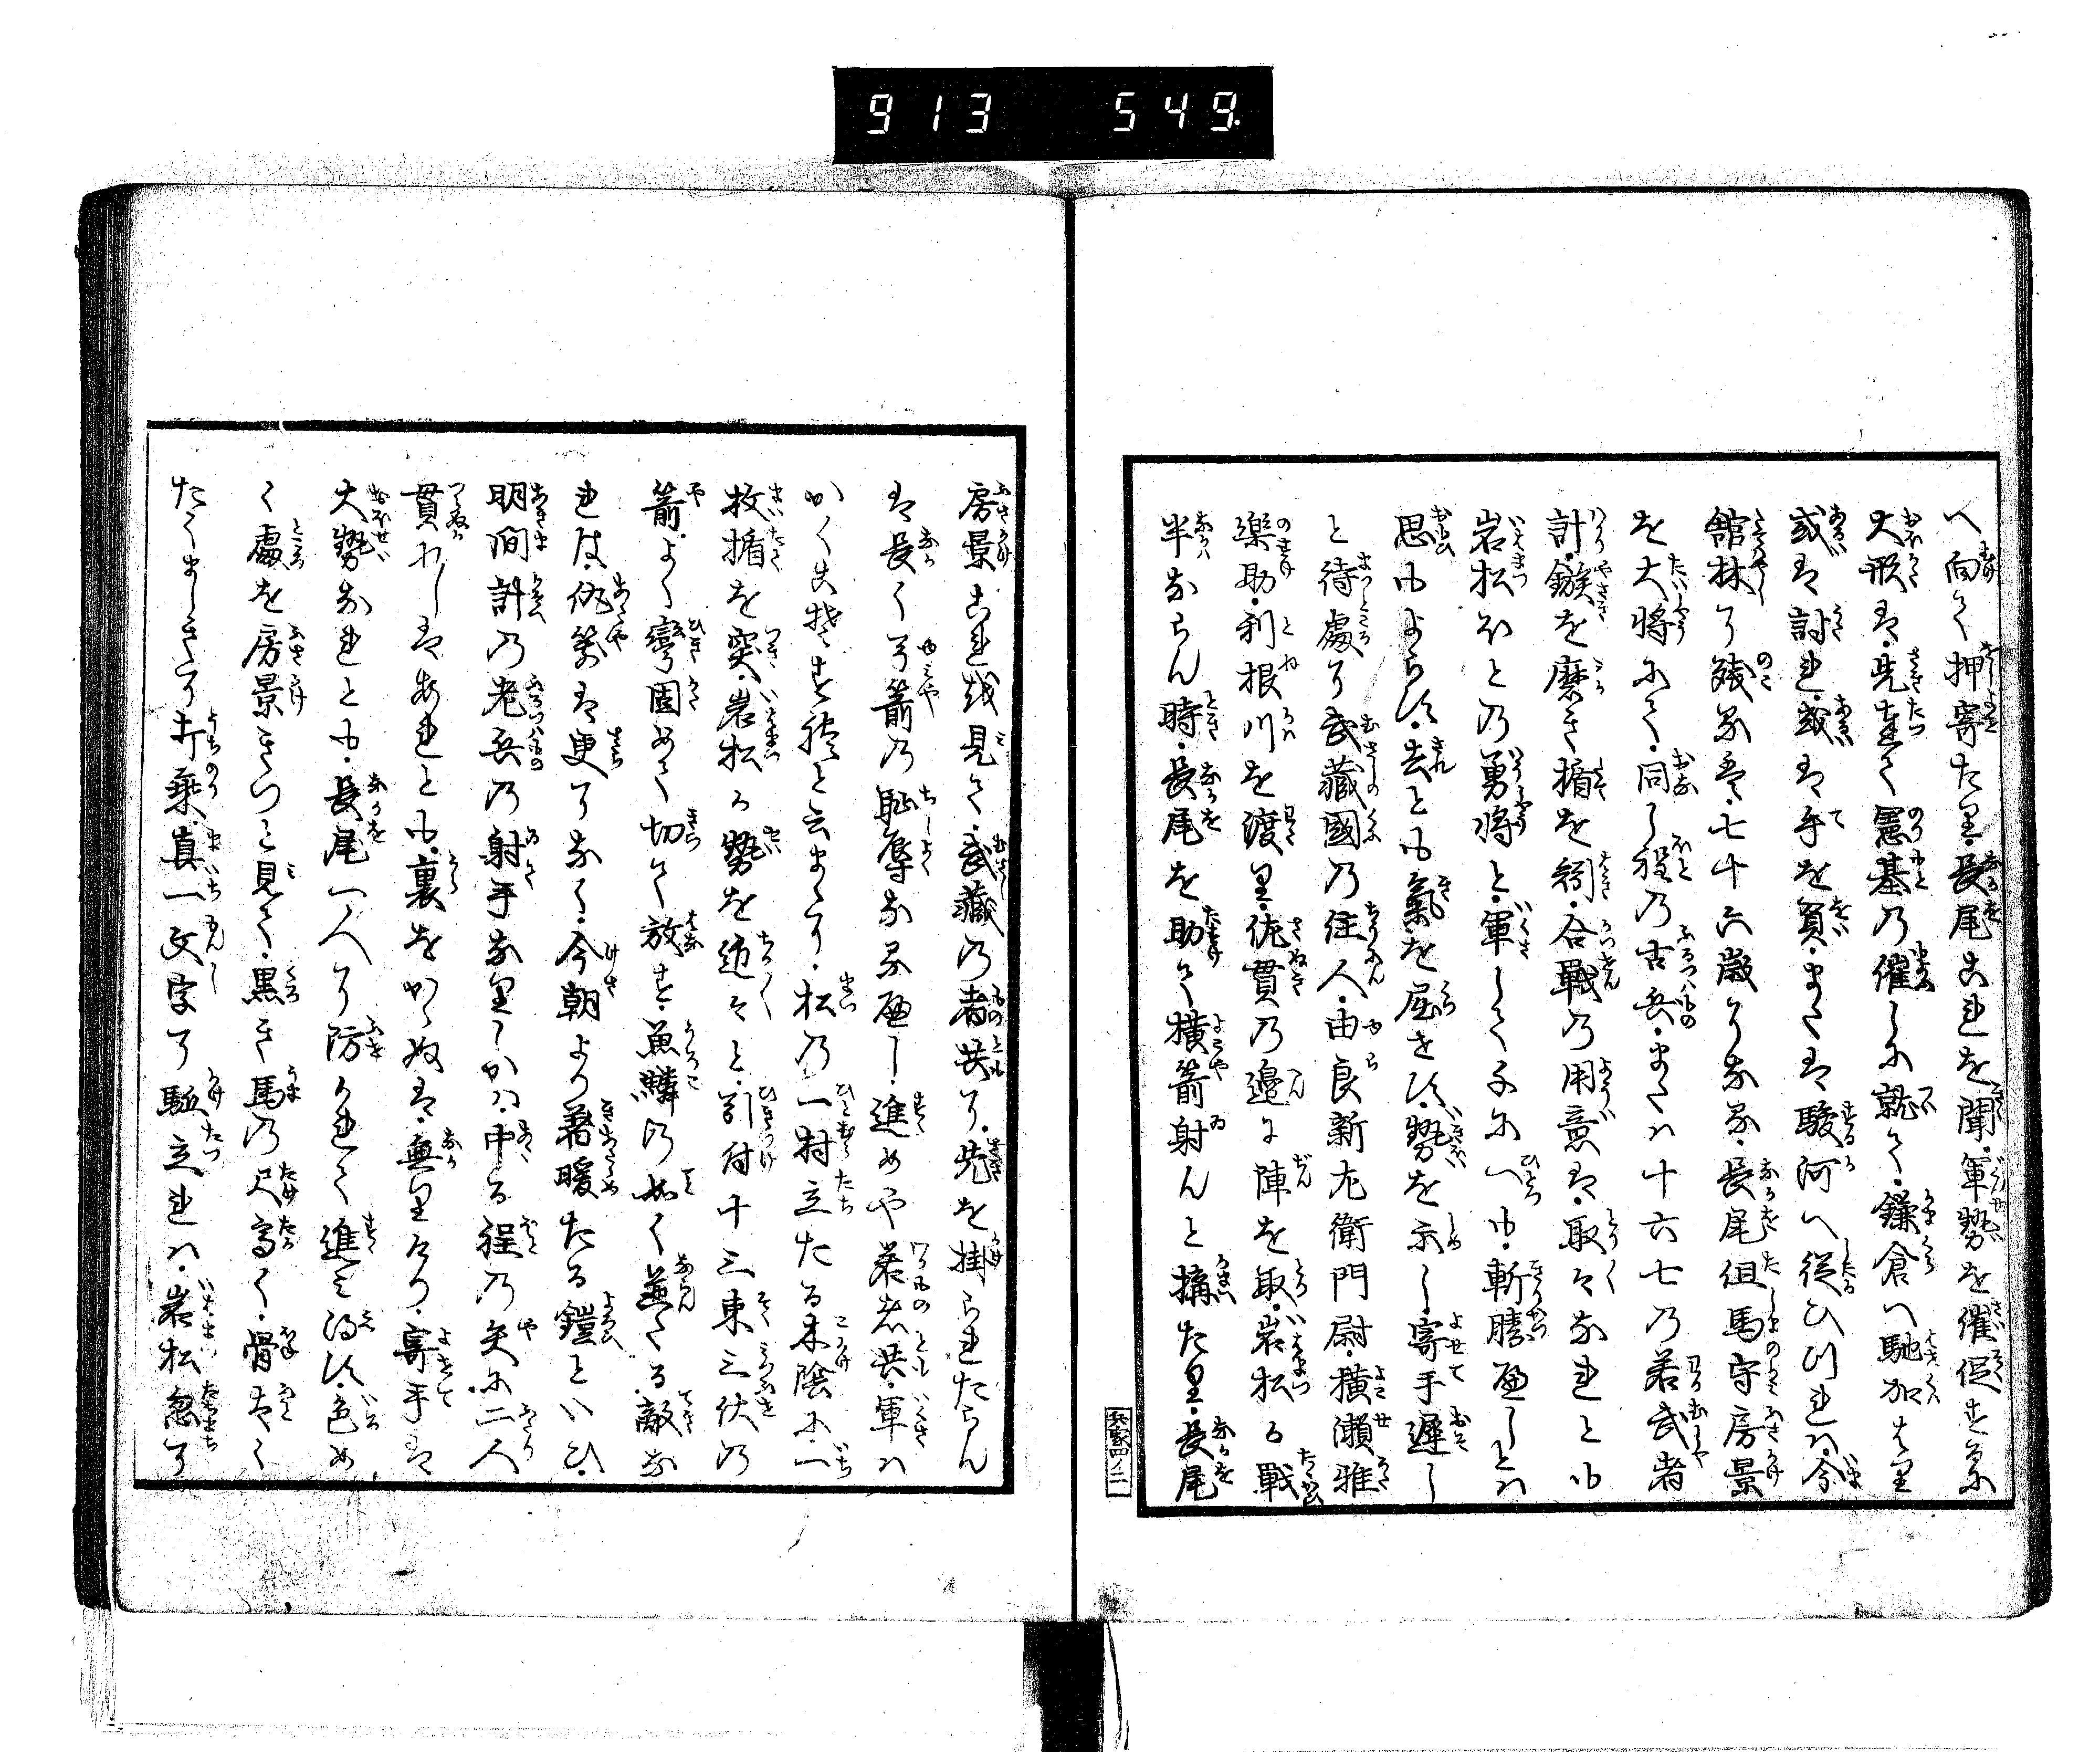 913 549
へ向て押寄たり長尾これを聞軍勢を催促する
大形は先達て憲基の催しに就て鎌倉へ馳加はり
或は討れ或は手を負または駿河へ従ひ行れハ今
舘林に残るは七十六歳になる長尾但馬守房景
を大将にて同し程の古兵または十六七の若武者
計鏃を磨き楯を
合戦の用意は取々なれとも
岩松ほとの勇将と軍して千に一も斬勝へしとハ
思もよらす去とも氣を屈せす勢を示し寄手遅し
と待處に武藏國の住人由良新左衛門尉横瀬雅
楽助利根川を渡り佐貫の邊に陣を取岩松か戦
半ならん時長尾を助て横箭射んと搆たり長尾
兵家四ノ二
房景これ越見て武藏の者共に先を掛られたらん
は長く弓箭の恥辱なるへし進めや若者共軍ハ
かくこそすれと云まゝに松の一村立たる木陰に一
枚楯を突岩松か勢を近々と引付十三束三伏の
箭よく彎固めて切て放す魚鱗の如く並たる敵な
れは仇箭は更になく今朝より着暖たる鎧といひ
明間計の老兵の射手なりしかハ中る程の矢に二人
貫れしはあれとも裏をかゝぬは無りけり寄手は
大勢なれとも長尾一人に防かれて進み得す色め
く處を房景きつと見て黒き馬の尺高く骨太く
たくましきに打乗真一文字に駈立れハ岩松忽に